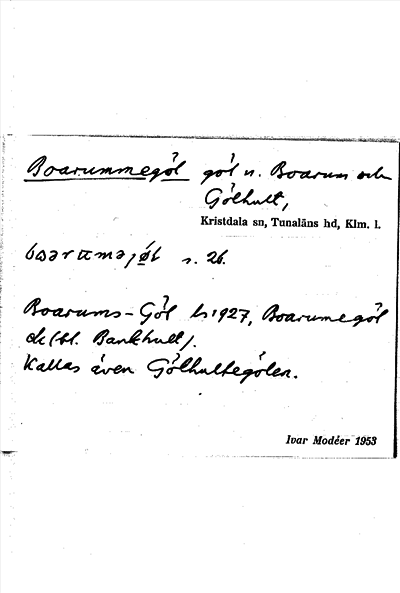 Boarummegöl göl n. Boarum och
Gölhult,
Kristdala sn, Tunaläns hd, Klm. l.
s. 26.
Boarums-Göl ls 1927, Boarumegöl
dk (bl. Bankhult).
Kallas även Gölhultegölen.
Ivar Modéer 1953